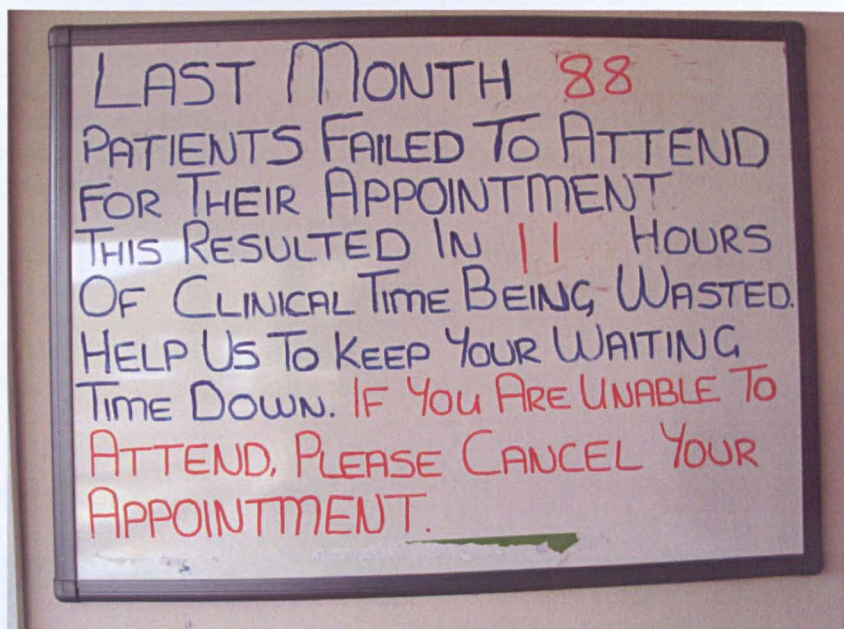 LAST MONTH 88
PATIENTS FAILED TO ATTEND
FOR THEIR APPOINTMENT
THIS RESULTED IN 11 HOURS
OF CLINICAL TIME BEING WASTED.
HELP US TO KEEP YOUR WAITING
TIME DOWN. IF YOU ARE UNABLE TO
ATTEND, PLEASE CANCEL YOUR
APPOINTMENT.